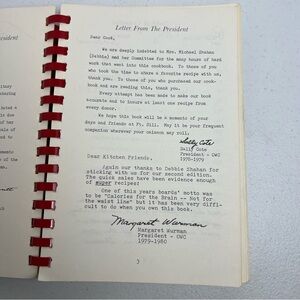 Letter From The President
Dear Cook,
We are deeply indebted to Mrs. Michael Shahan
(Debbie) and her Committee for the many hours of hard
work that went into this cookbook. To those of you
who took the time to share a favorite recipe with us,
thank you. To those of you who have purchased our cook-
book and are reading this, thank you.
Every attempt has been made to make our book
accurate and to insure at least one recipe from
every donor.
We hope this book will be a momento of your
days and friends at Ft. Sill. May it be your frequent
companion wherever your caisson may roll.
Sally Cote
Sally Cote
President - OWC
1978-1979
Dear Kitchen Friends,
Again our thanks to Debbie Shahan for
sticking with us for our second edition.
The quick sales have been evidence enough
of super recipes!
One of this years boards' motto was
to be "Calories for the Brain -- Not for
the waist line" but it has been very diffi-
cult to do when you own this book.
Margaret Wurman
Margaret Wurman
President - OWC
1979-1980
3